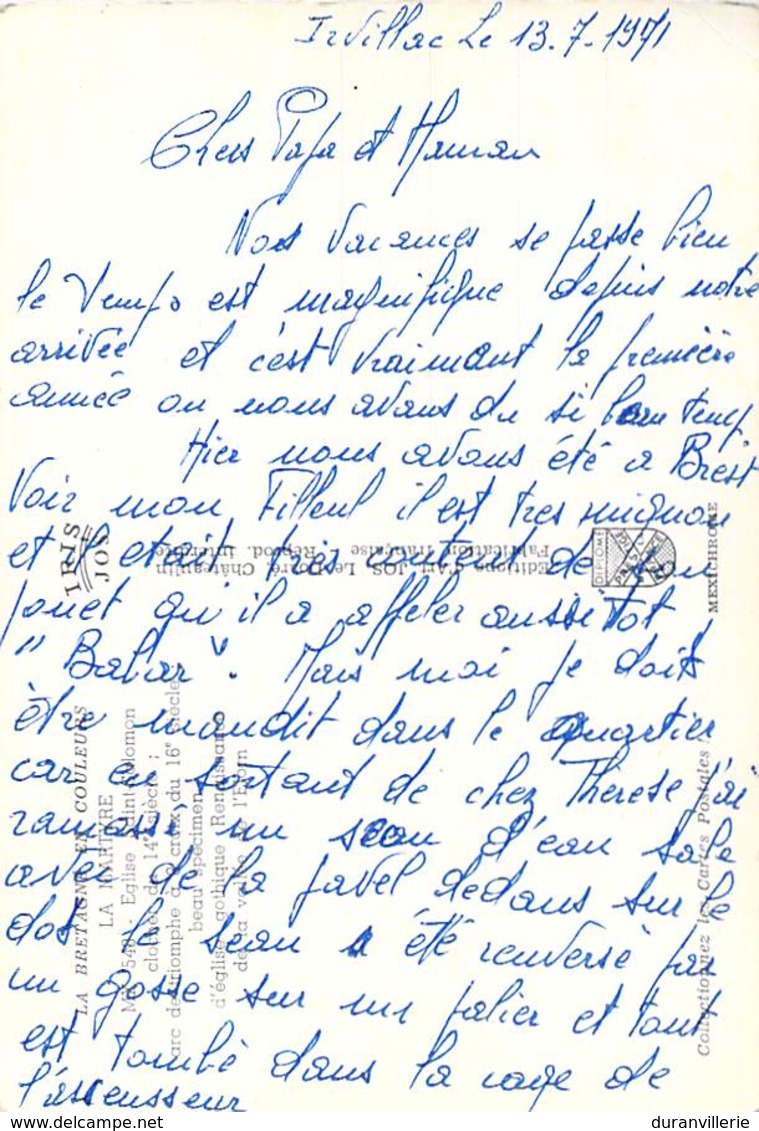 Irvillac Le 13.7.1971
Chers Papa et Maman
Nos vacances se passe bien
le temps est magnifique depuis notre
arrivée et c'est vraimant la première
année ou nous avons du si beau temp
Hier nous avons été a Brest
Voir mon Filleul il est tres mignon
et il etait tres content de son
jouet qu'il a appeler aussi tot
"Babar". Mais moi je doits
être maudit dans le quartier
car en sortant de chez Therese j'ai
ramassé un seau d'eau sale
avec de la javel dedans sur le
dos le seau a été renversé par
un gosse sur un palier et tout
est tombé dans la cage de
l'ascensseur
IRIS
JOS
Editions d'Art JOS Le Doaré, Châteaulin
Fabrication française - Reprod. interdite
DIPLOME
MEXICHROME
LA BRETAGNE EN COULEURS
LA MARTYRE
- Eglise Saint-Salomon
clocher du 14e siècle ;
arc de triomphe à la croix du 16e siècle
beau spécimen
d'église gothique Renaissance
de la vallée de l'Elorn
Collectionnez les Cartes Postales !
duranvillerie